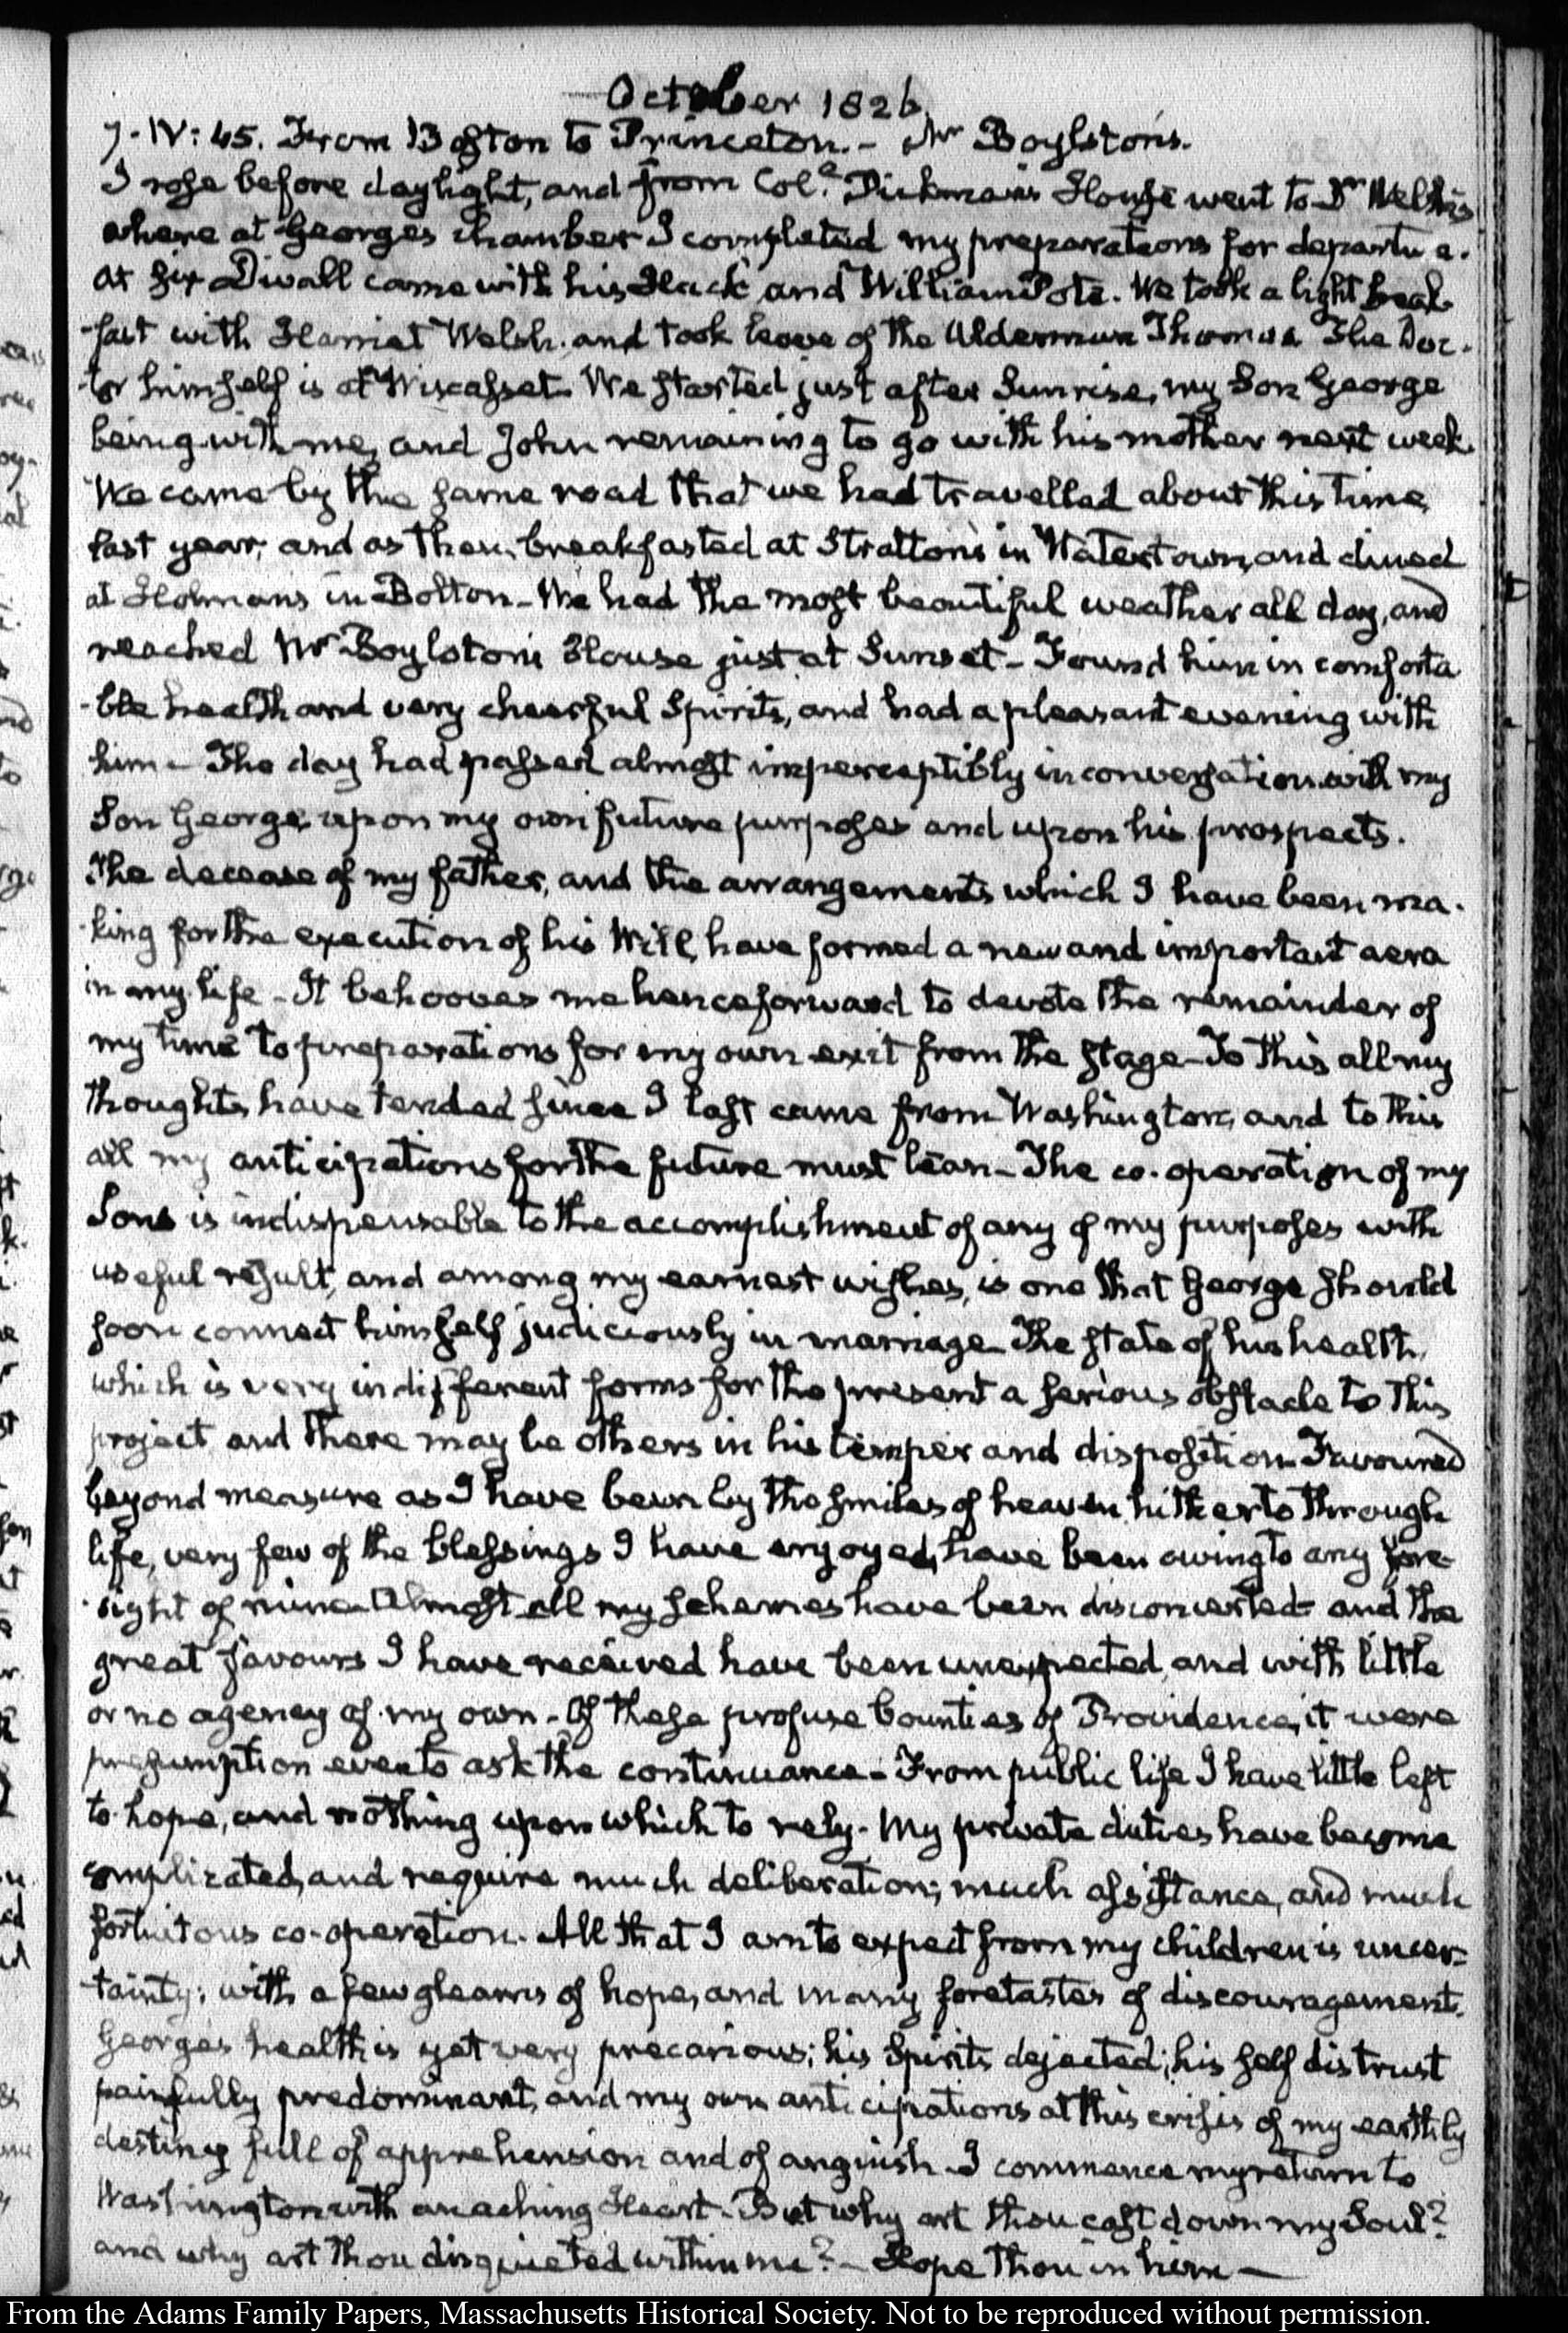 October 1826.
7. IV: 45. From Boston to Princeton. - Mr Boylston's.
I rose before daylight, and from Col.l Dickman's House went to Dr Welsh's
where at George's chamber I completed my preparations for departure.
At six Divall came with his Hack and William Pote. We took a light break-
-fast with Harriet Welsh, and took leave of the Alderman Thomas. The Doc-
-tor himself is at Wiscasset. We started just after Sunrise, my Son George
being with me, and John remaining to go with his mother next week.
We came by the same road that we had travelled about this time
last year, and as then, breakfasted at Stratton's in Watertown, and dined
at Holman's in Bolton - We had the most beautiful weather all day, and
reached Mr Boylston's House just at Sunset - Found him in comforta
-ble health and very cheerful Spirits, and had a pleasant evening with
him - The day had passed almost imperceptibly in conversation with my
Son George, upon my own future purposes and upon his prospects.
The decease of my father, and the arrangements which I have been ma-
-king for the execution of his Will, have formed a new and important aera
in my life - It behooves me henceforward to devote the remainder of
my time to preparations for my own exit from the stage - To this all my
thoughts have tended since I last came from Washington, and to this
all my anticipations for the future must lean - The co-operation of my
Sons is indispensable to the accomplishment of any of my purposes with
useful result, and among my earnest wishes, is one that George should
soon connect himself judiciously in marriage - The state of his health,
which is very indifferent forms for the present a serious obstacle to this
project and there may be others in his temper and disposition - Favoured
beyond measure as I have been by the smiles of heaven hitherto through
life, very few of the blessings I have enjoyed, have been owing to any fore-
-sight of mine - Almost all my schemes have been disconcerted - and the
great favours I have received have been unexpected, and with little
or no agency of my own - Of these profuse bounties of Providence, it were
presumption even to ask the continuance - From public life I have little left
to hope, and nothing upon which to rely - My private duties have become
complicated, and require much deliberation; much assistance, and much
fortuitous co-operation. All that I am to expect from my children is uncer-
-tainty; with a few gleams of hope, and many foretastes of discouragement.
George's health is yet very precarious; his Spirits dejected; his self distrust
painfully predominant, and my own anticipations at this crisis of my earthly
destiny full of apprehension and of anguish - I commence my return to
Washington with an aching Heart - But why art thou cast down my Soul?
and why art thou disquieted within me? - Hope thou in him -
From the Adams Family Papers, Massachusetts Historical Society. Not to be reproduced without permission.